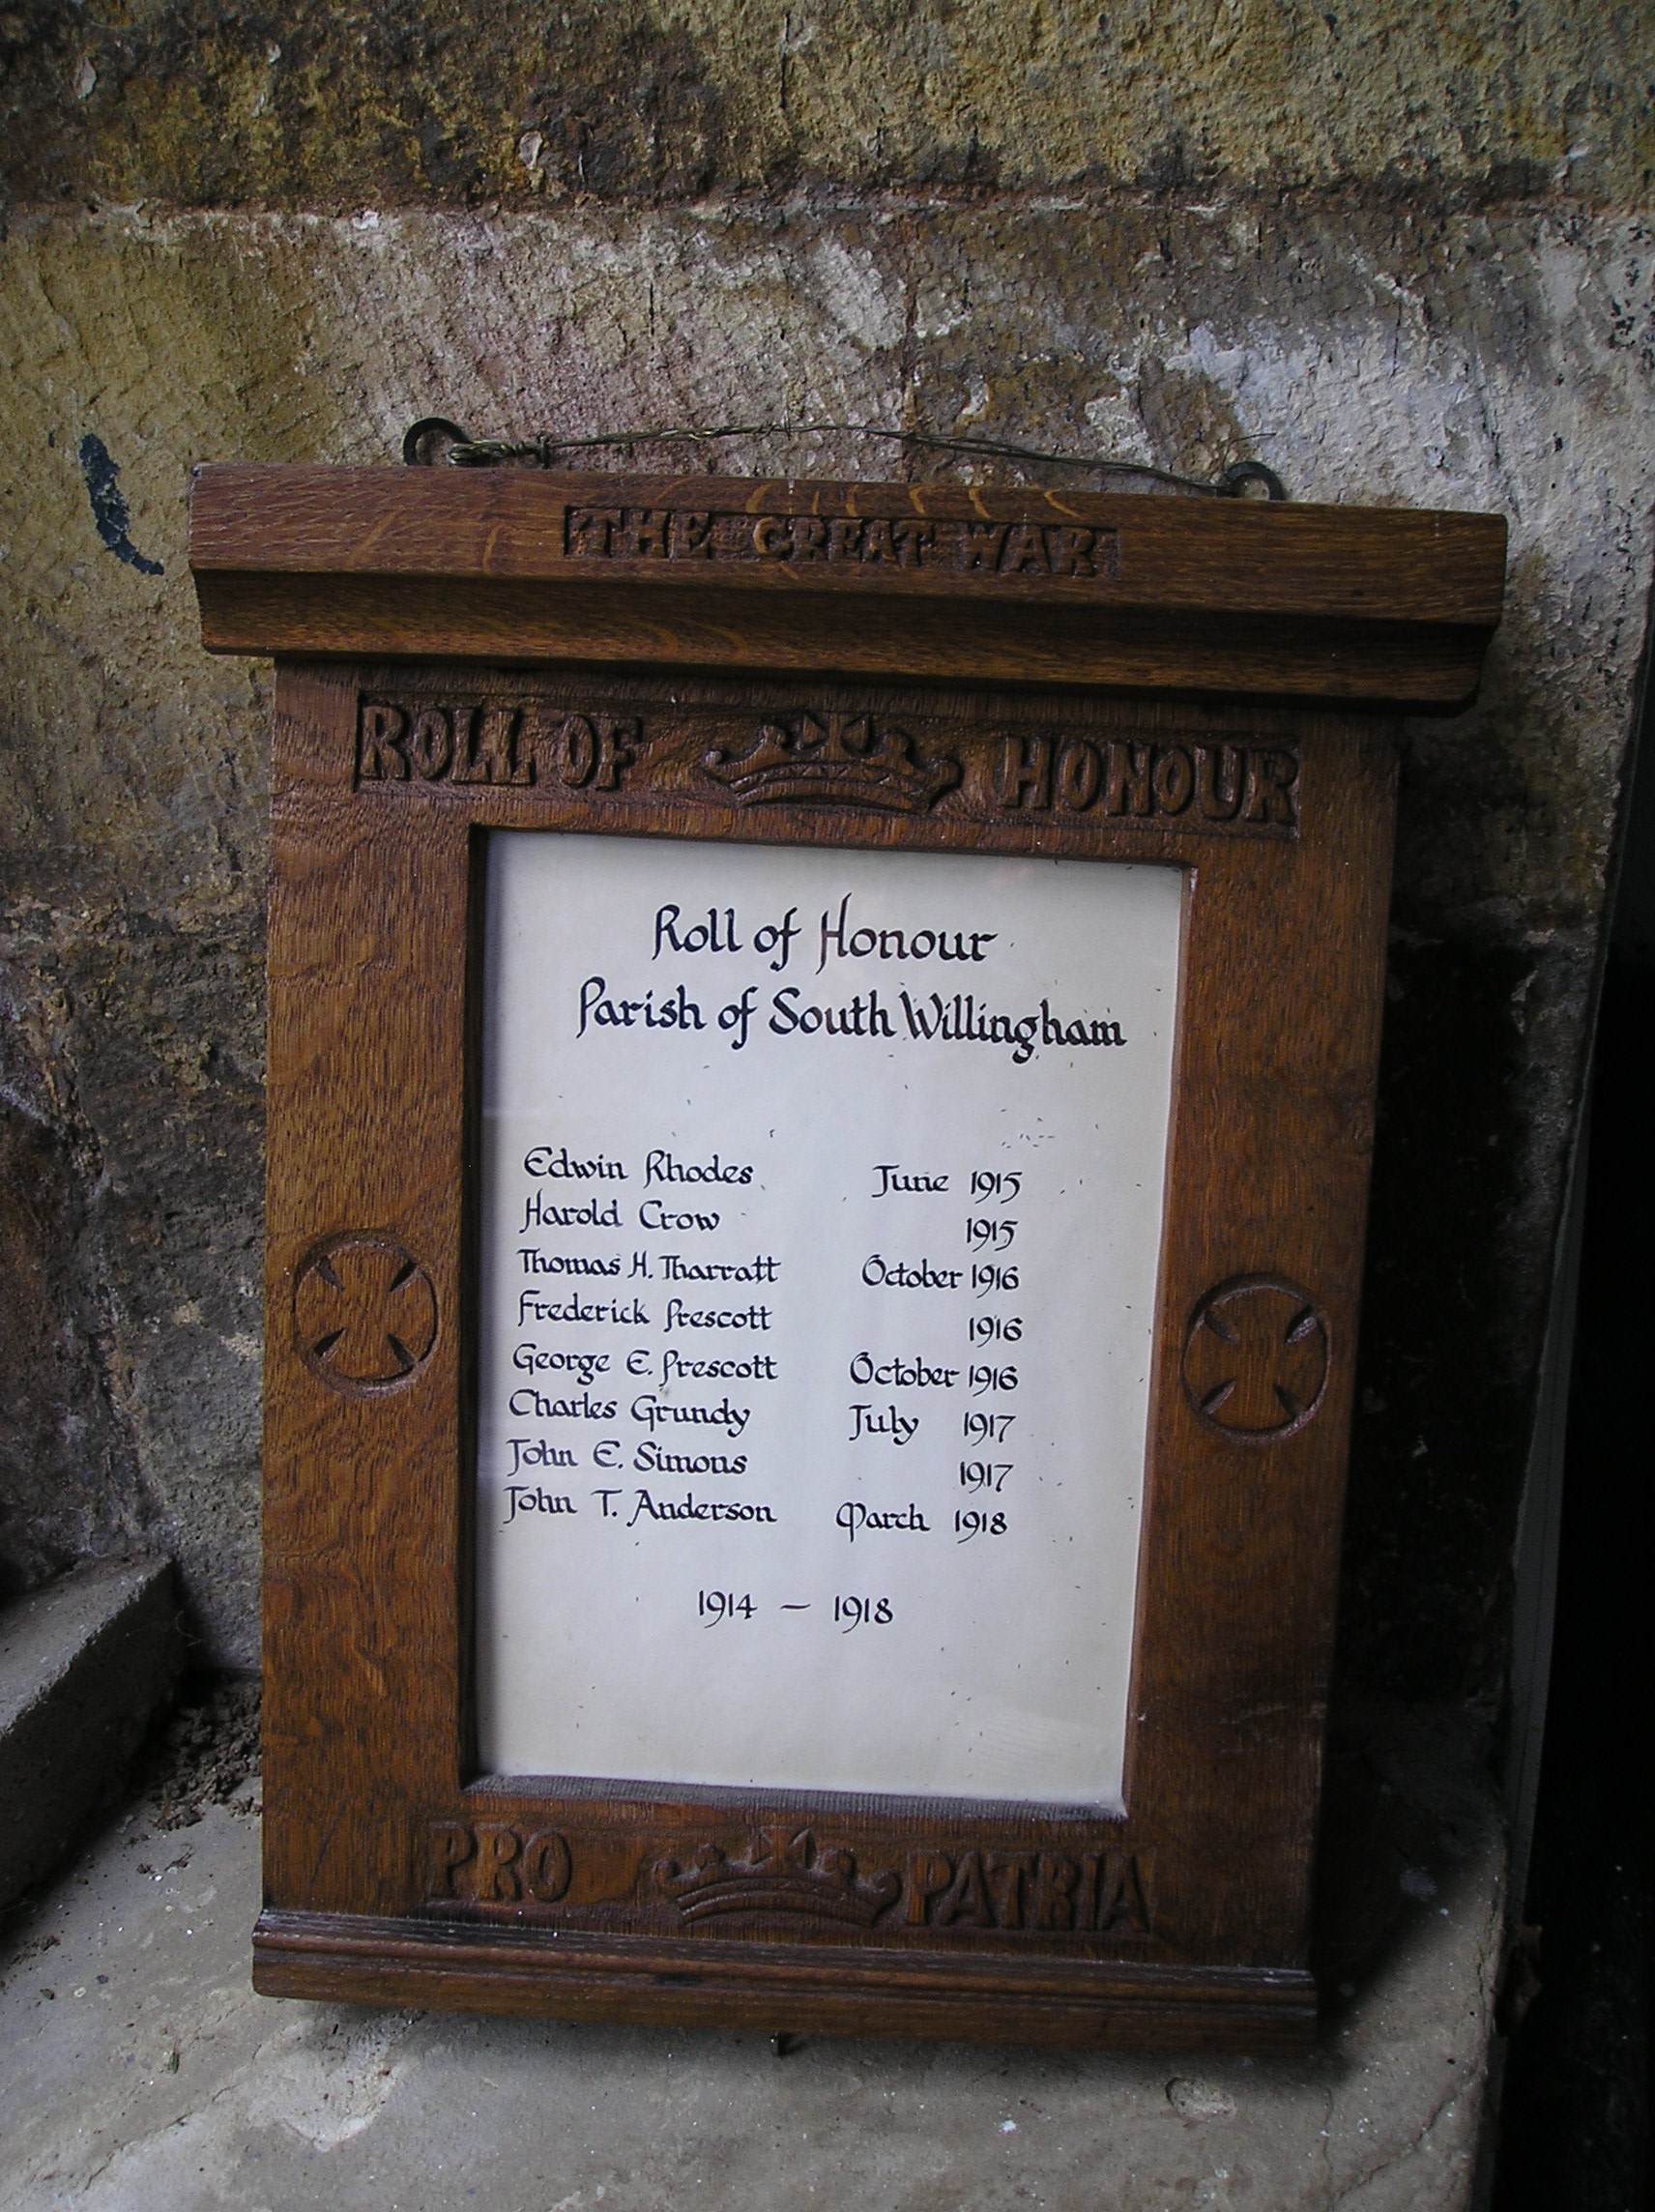 THE GREAT WAR
ROLL OF HONOUR
Roll of Honour
Parish of South Willingham
Edwin Rhodes June 1915
Harold Crow 1915
Thomas H. Tharratt October 1916
Frederick Prescott 1916
George E. Prescott October 1916
Charles Grundy July 1917
John E. Simons 1917
John T. Anderson March 1918
1914 – 1918
PRO PATRIA